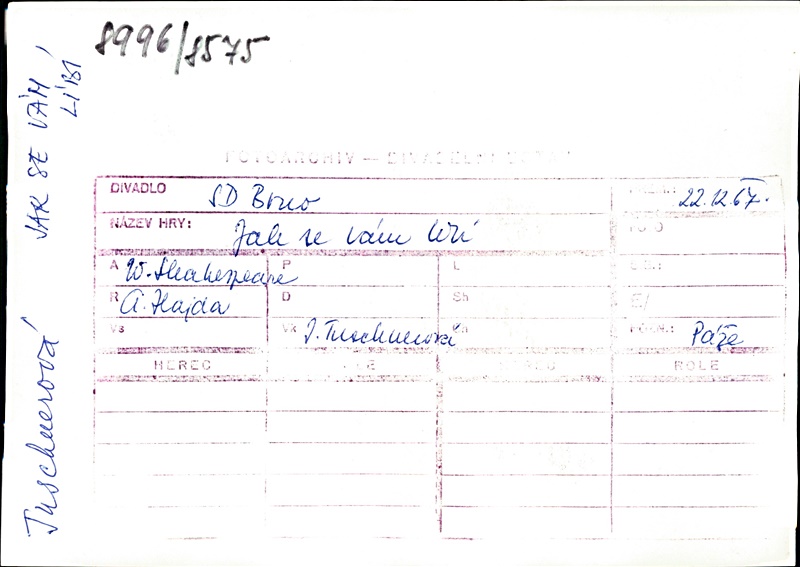 8996/8575
JAK SE VÁM LÍBÍ
Tuschnerová
FOTOARCHIV – DIVADELNÍ
DIVADLO SD Brno 22.12.67.
NÁZEV HRY: Jak se vám líbí
A W. Shakespeare P L
R A. Hajda D Sh
Vs Vk J. Tuschnerová Páže
HEREC ROLE